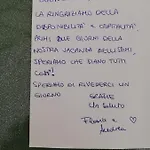 LA RINGRAZIAMO DELLA
DISPONIBILITÀ E OSPITALITÀ.
PRIMI DUE GIORNI DELLA
NOSTRA VACANZA BELLISSIMI,
SPERIAMO CHE SIANO TUTTI
COSÌ!
SPERIAMO DI RIVEDERCI UN
GIORNO
GRAZIE
UN SALUTO